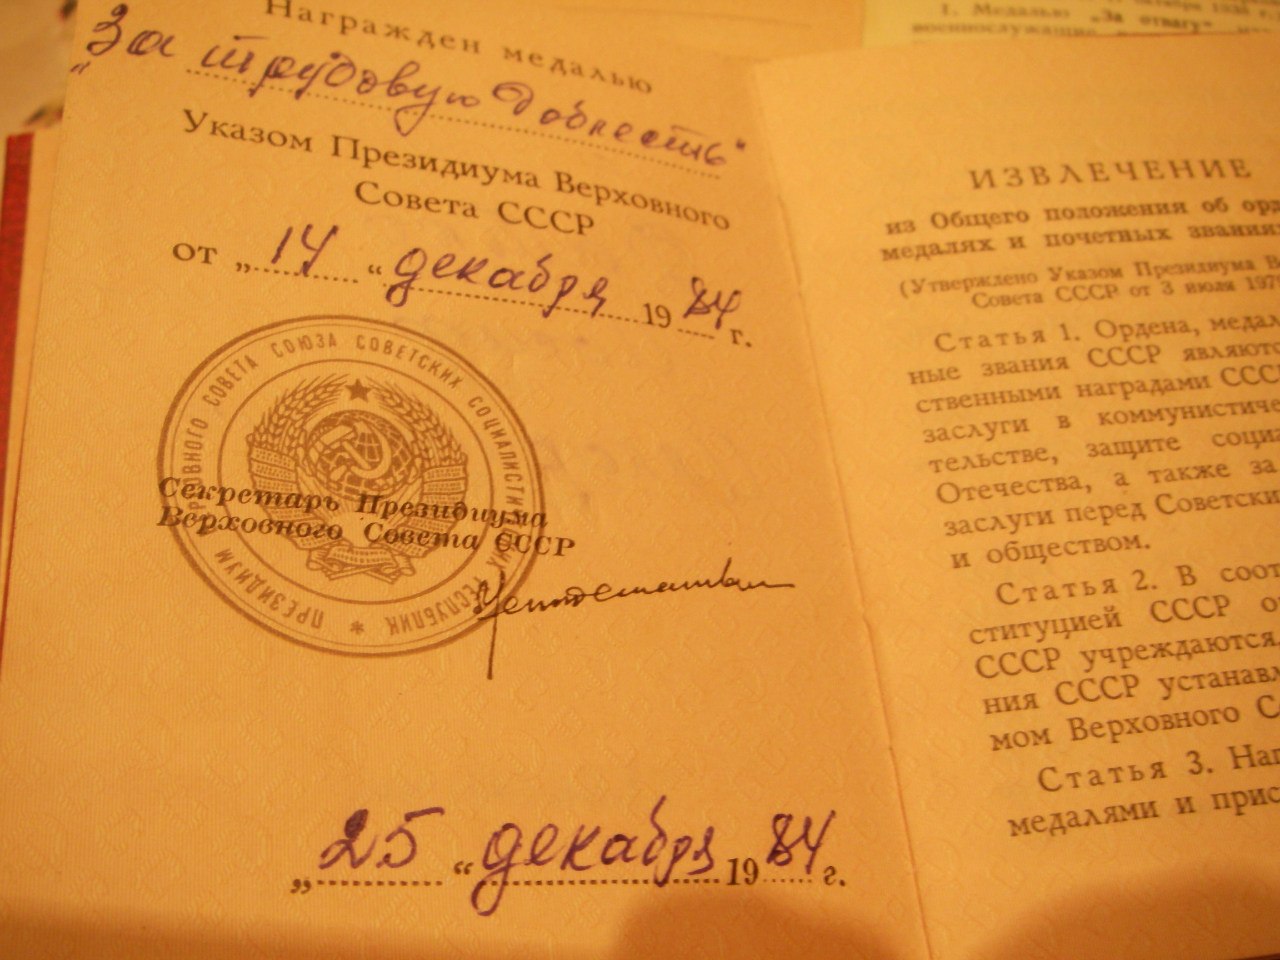 Награжден медалью
„За трудовую доблесть"
Указом Президиума Верховного
Совета СССР
от „14“ декабря 1984 г.
ПРЕЗИДИУМ ВЕРХОВНОГО СОВЕТА СОЮЗА СОВЕТСКИХ СОЦИАЛИСТИЧЕСКИХ РЕСПУБЛИК *
Секретарь Президиума
Верховного Совета СССР
„25“ декабря 1984 г.
1. Медалью „За отвагу“
военнослужащие
ИЗВЛЕЧЕНИЕ
из Общего положения об орд
медалях и почетных званиях
(Утверждено Указом Президиума В
Совета СССР от 3 июля 197
Статья 1. Ордена, медал
ные звания СССР являютс
ственными наградами СССР
заслуги в коммунистиче
тельстве, защите социа
Отечества, а также за
заслуги перед Советски
и обществом.
Статья 2. В соот
ституцией СССР о
СССР учреждаются
ния СССР устанавл
мом Верховного Со
Статья 3. Наг
медалями и прис